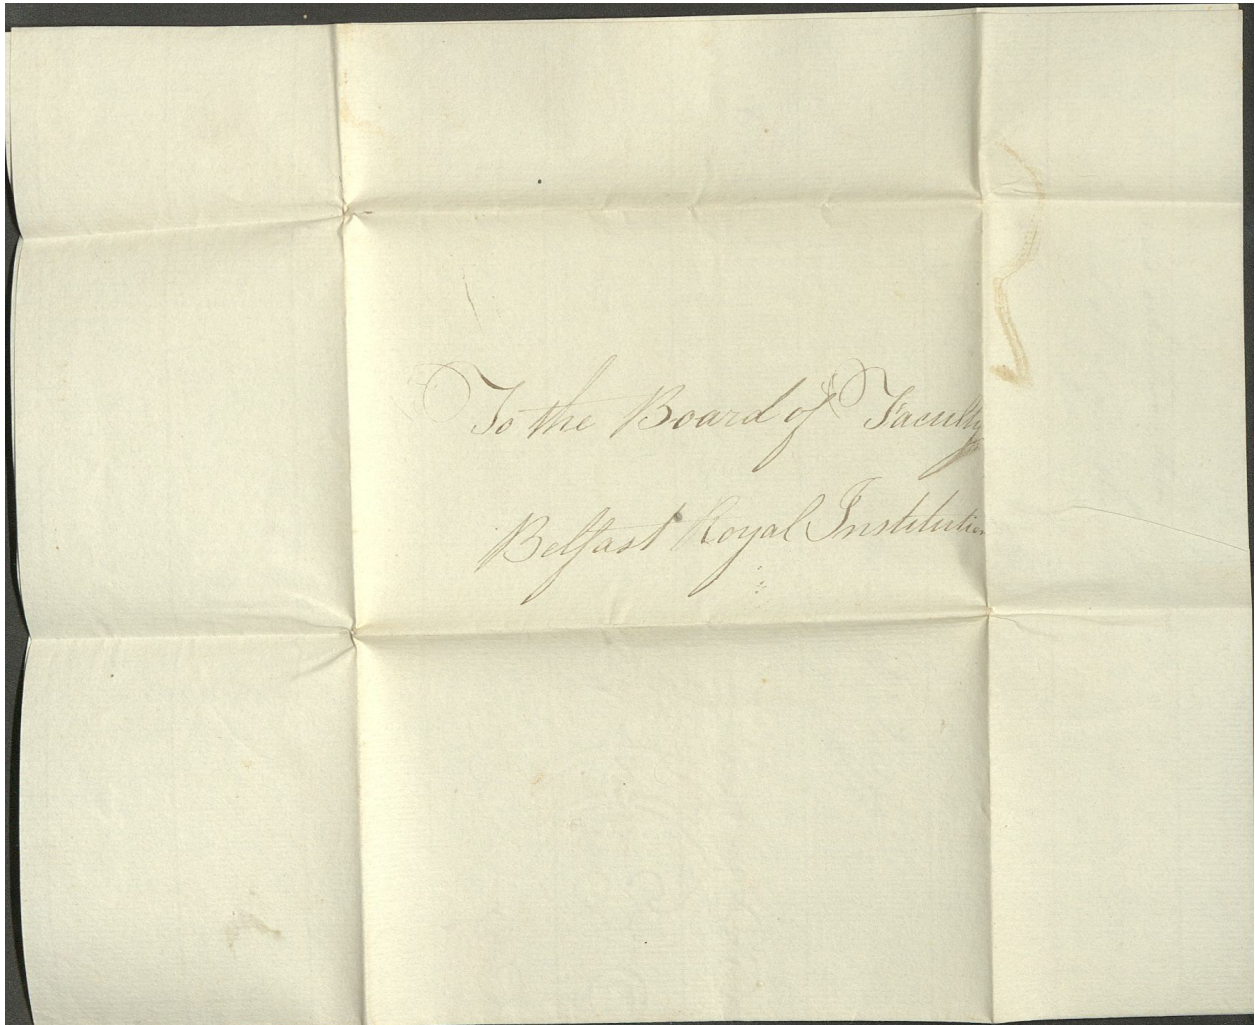 To the Board of Faculty
Belfast Royal Institution